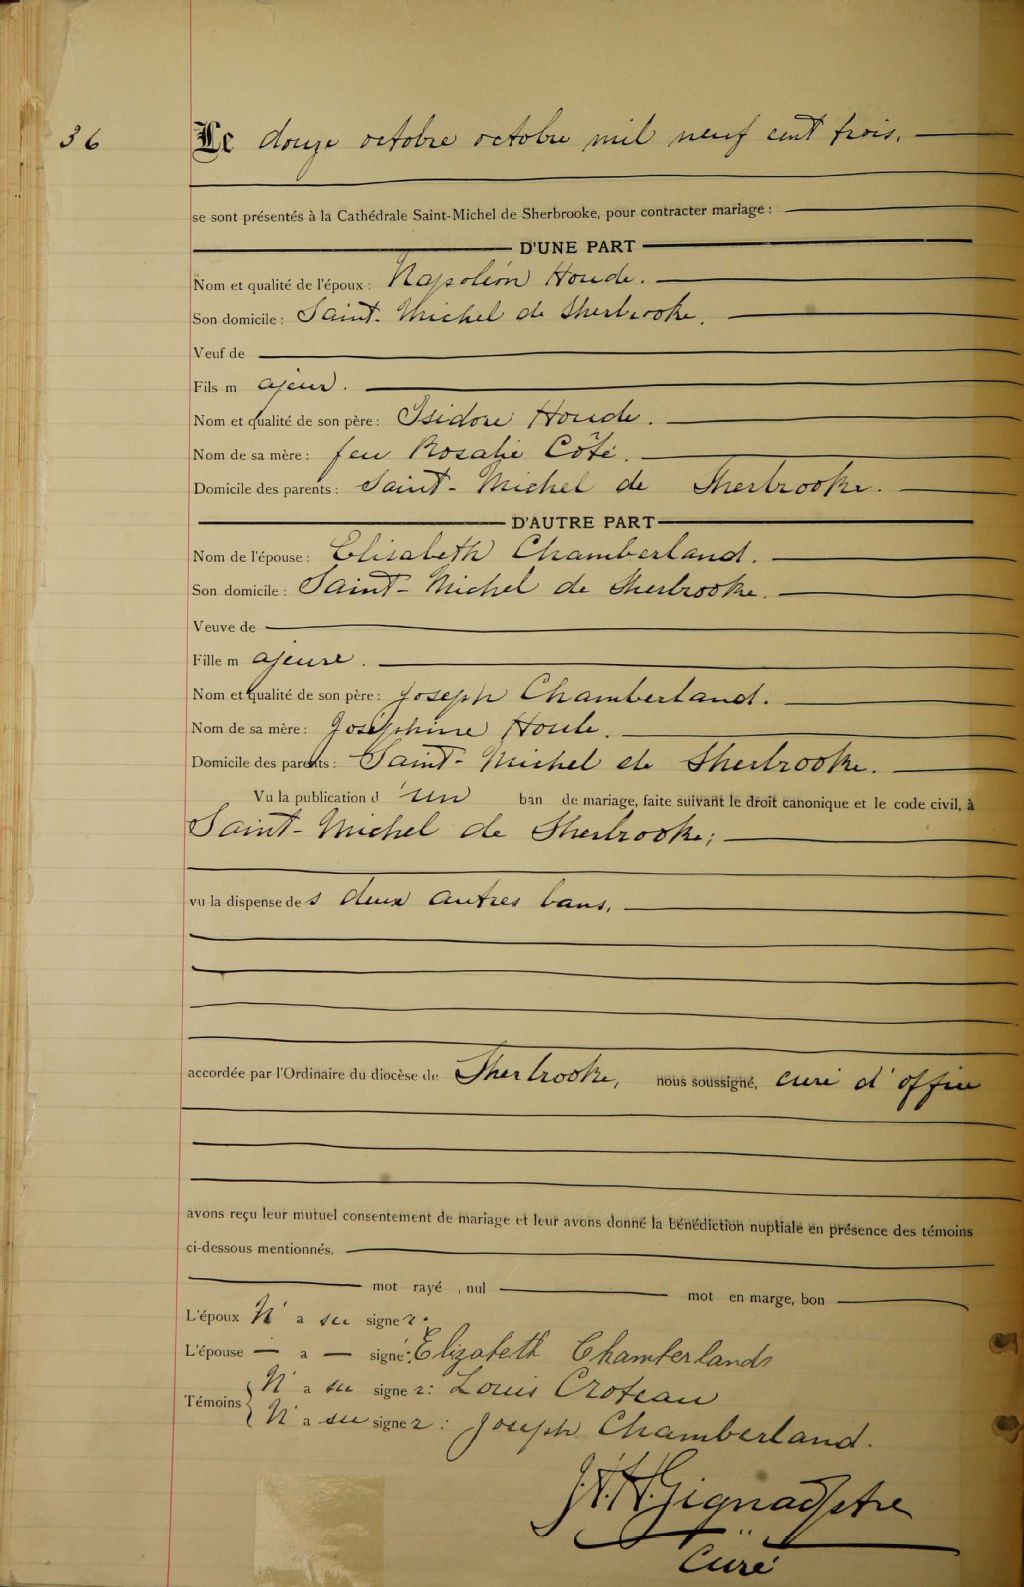 36
Le douze octobre octobre mil neuf cent trois.
se sont présentés à la Cathédrale Saint-Michel de Sherbrooke, pour contracter mariage :
D'UNE PART
Nom et qualité de l'époux : Napoléon Houde.
Son domicile : Saint-Michel de Sherbrooke.
Veuf de
Fils m ajeur.
Nom et qualité de son père : Isidore Houde.
Nom de sa mère : feu Rosalie Côté.
Domicile des parents : Saint-Michel de Sherbrooke.
D'AUTRE PART
Nom de l'épouse : Elisabeth Chamberland.
Son domicile : Saint-Michel de Sherbrooke.
Veuve de
Fille m ajeure.
Nom et qualité de son père : Joseph Chamberland.
Nom de sa mère : Joséphine Houle.
Domicile des parents : Saint-Michel de Sherbrooke.
Vu la publication d 'un ban de mariage, faite suivant le droit canonique et le code civil, à
Saint-Michel de Sherbrooke;
vu la dispense de s deux autres bans.
accordée par l'Ordinaire du diocèse de Sherbrooke, nous soussigné, curé d'office
avons reçu leur mutuel consentement de mariage et leur avons donné la bénédiction nuptiale en présence des témoins
ci-dessous mentionnés.
mot rayé , nul mot en marge, bon
L'époux N' a su signer.
L'épouse — a — signé: Elizabeth Chamberland
Témoins N' a su signer: Louis Croteau
N' a su signer: Joseph Chamberland.
J.A.H. Gignac Ptre
Curé